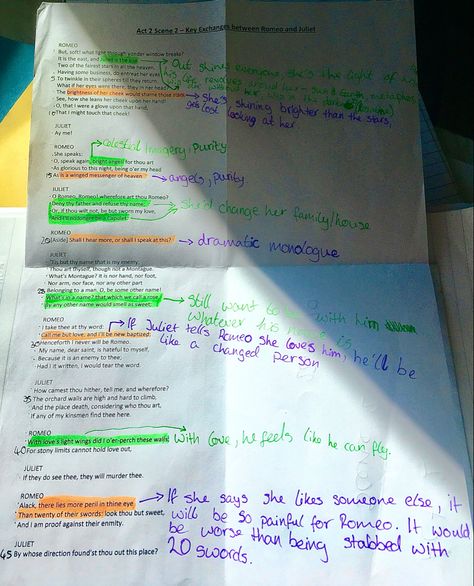 Act 2 Scene 2 – Key Exchanges between Romeo and Juliet
ROMEO
But, soft! what light through yonder window breaks?
It is the east, and Juliet is the sun.
Two of the fairest stars in all the heaven,
Having some business, do entreat her eyes
5 To twinkle in their spheres till they return.
What if her eyes were there, they in her head?
The brightness of her cheek would shame those stars
See, how she leans her cheek upon her hand!
O, that I were a glove upon that hand,
10 That I might touch that cheek!
Out shines everyone, she's the light of
his life
revolves around her - sun & Earth metaphor
without her, he's in the dark
She's shining brighter than the stars,
gets lost looking at her
JULIET
Ay me!
ROMEO
She speaks:
O, speak again, bright angel! for thou art
As glorious to this night, being o'er my head
15 As is a winged messenger of heaven
celestial Imagery, Purity
angels, purity
JULIET
O Romeo, Romeo! wherefore art thou Romeo?
Deny thy father and refuse thy name;
Or, if thou wilt not, be but sworn my love,
And I'll no longer be a Capulet.
she'd change her family/house
ROMEO
20 [Aside] Shall I hear more, or shall I speak at this?
dramatic monologue
JULIET
'Tis but thy name that is my enemy;
Thou art thyself, though not a Montague.
What's Montague? It is nor hand, nor foot,
Nor arm, nor face, nor any other part
Belonging to a man. O, be some other name!
25 What's in a name? that which we call a rose
By any other name would smell as sweet;
Still want to with him
whatever his name is
ROMEO
I take thee at thy word:
Call me but love, and I'll be new baptized;
30 Henceforth I never will be Romeo.
My name, dear saint, is hateful to myself,
Because it is an enemy to thee;
Had I it written, I would tear the word.
If Juliet tells Romeo she loves him, he'll be
like a changed person
JULIET
How camest thou hither, tell me, and wherefore?
35 The orchard walls are high and hard to climb,
And the place death, considering who thou art,
If any of my kinsmen find thee here.
ROMEO
With love's light wings did I o'er-perch these walls;
40 For stony limits cannot hold love out,
with love, he feels like he can fly.
JULIET
If they do see thee, they will murder thee.
ROMEO
'Alack, there lies more peril in thine eye
Than twenty of their swords: look thou but sweet,
And I am proof against their enmity.
If she says she likes someone else, it
will be so painful for Romeo. It would
be worse than being stabbed with
20 swords.
JULIET
45 By whose direction found'st thou out this place?